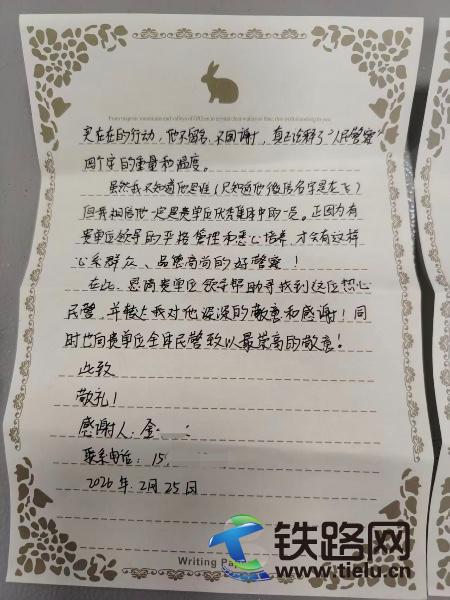 实在在的行动，他不留名，不回谢，真正诠释了"人民警察"
四个字的重量和温度。
虽然我不知道他是谁（只知道他微信名字是龙飞）
但我相信他一定是贵单位优秀集体中的一员。正因为有
贵单位领导的严格管理和悉心培养，才会有这样
心系群众、品德高尚的好警察！
在此，恳请贵单位领导帮助寻找到这位热心
民警，并转达我对他深深的敬意和感谢！同
时也向贵单位全体民警致以最崇高的敬意！
此致
敬礼！
感谢人：金
联系电话：15
2026年2月25日
Writing Pap
铁路网
www.tielu.cn